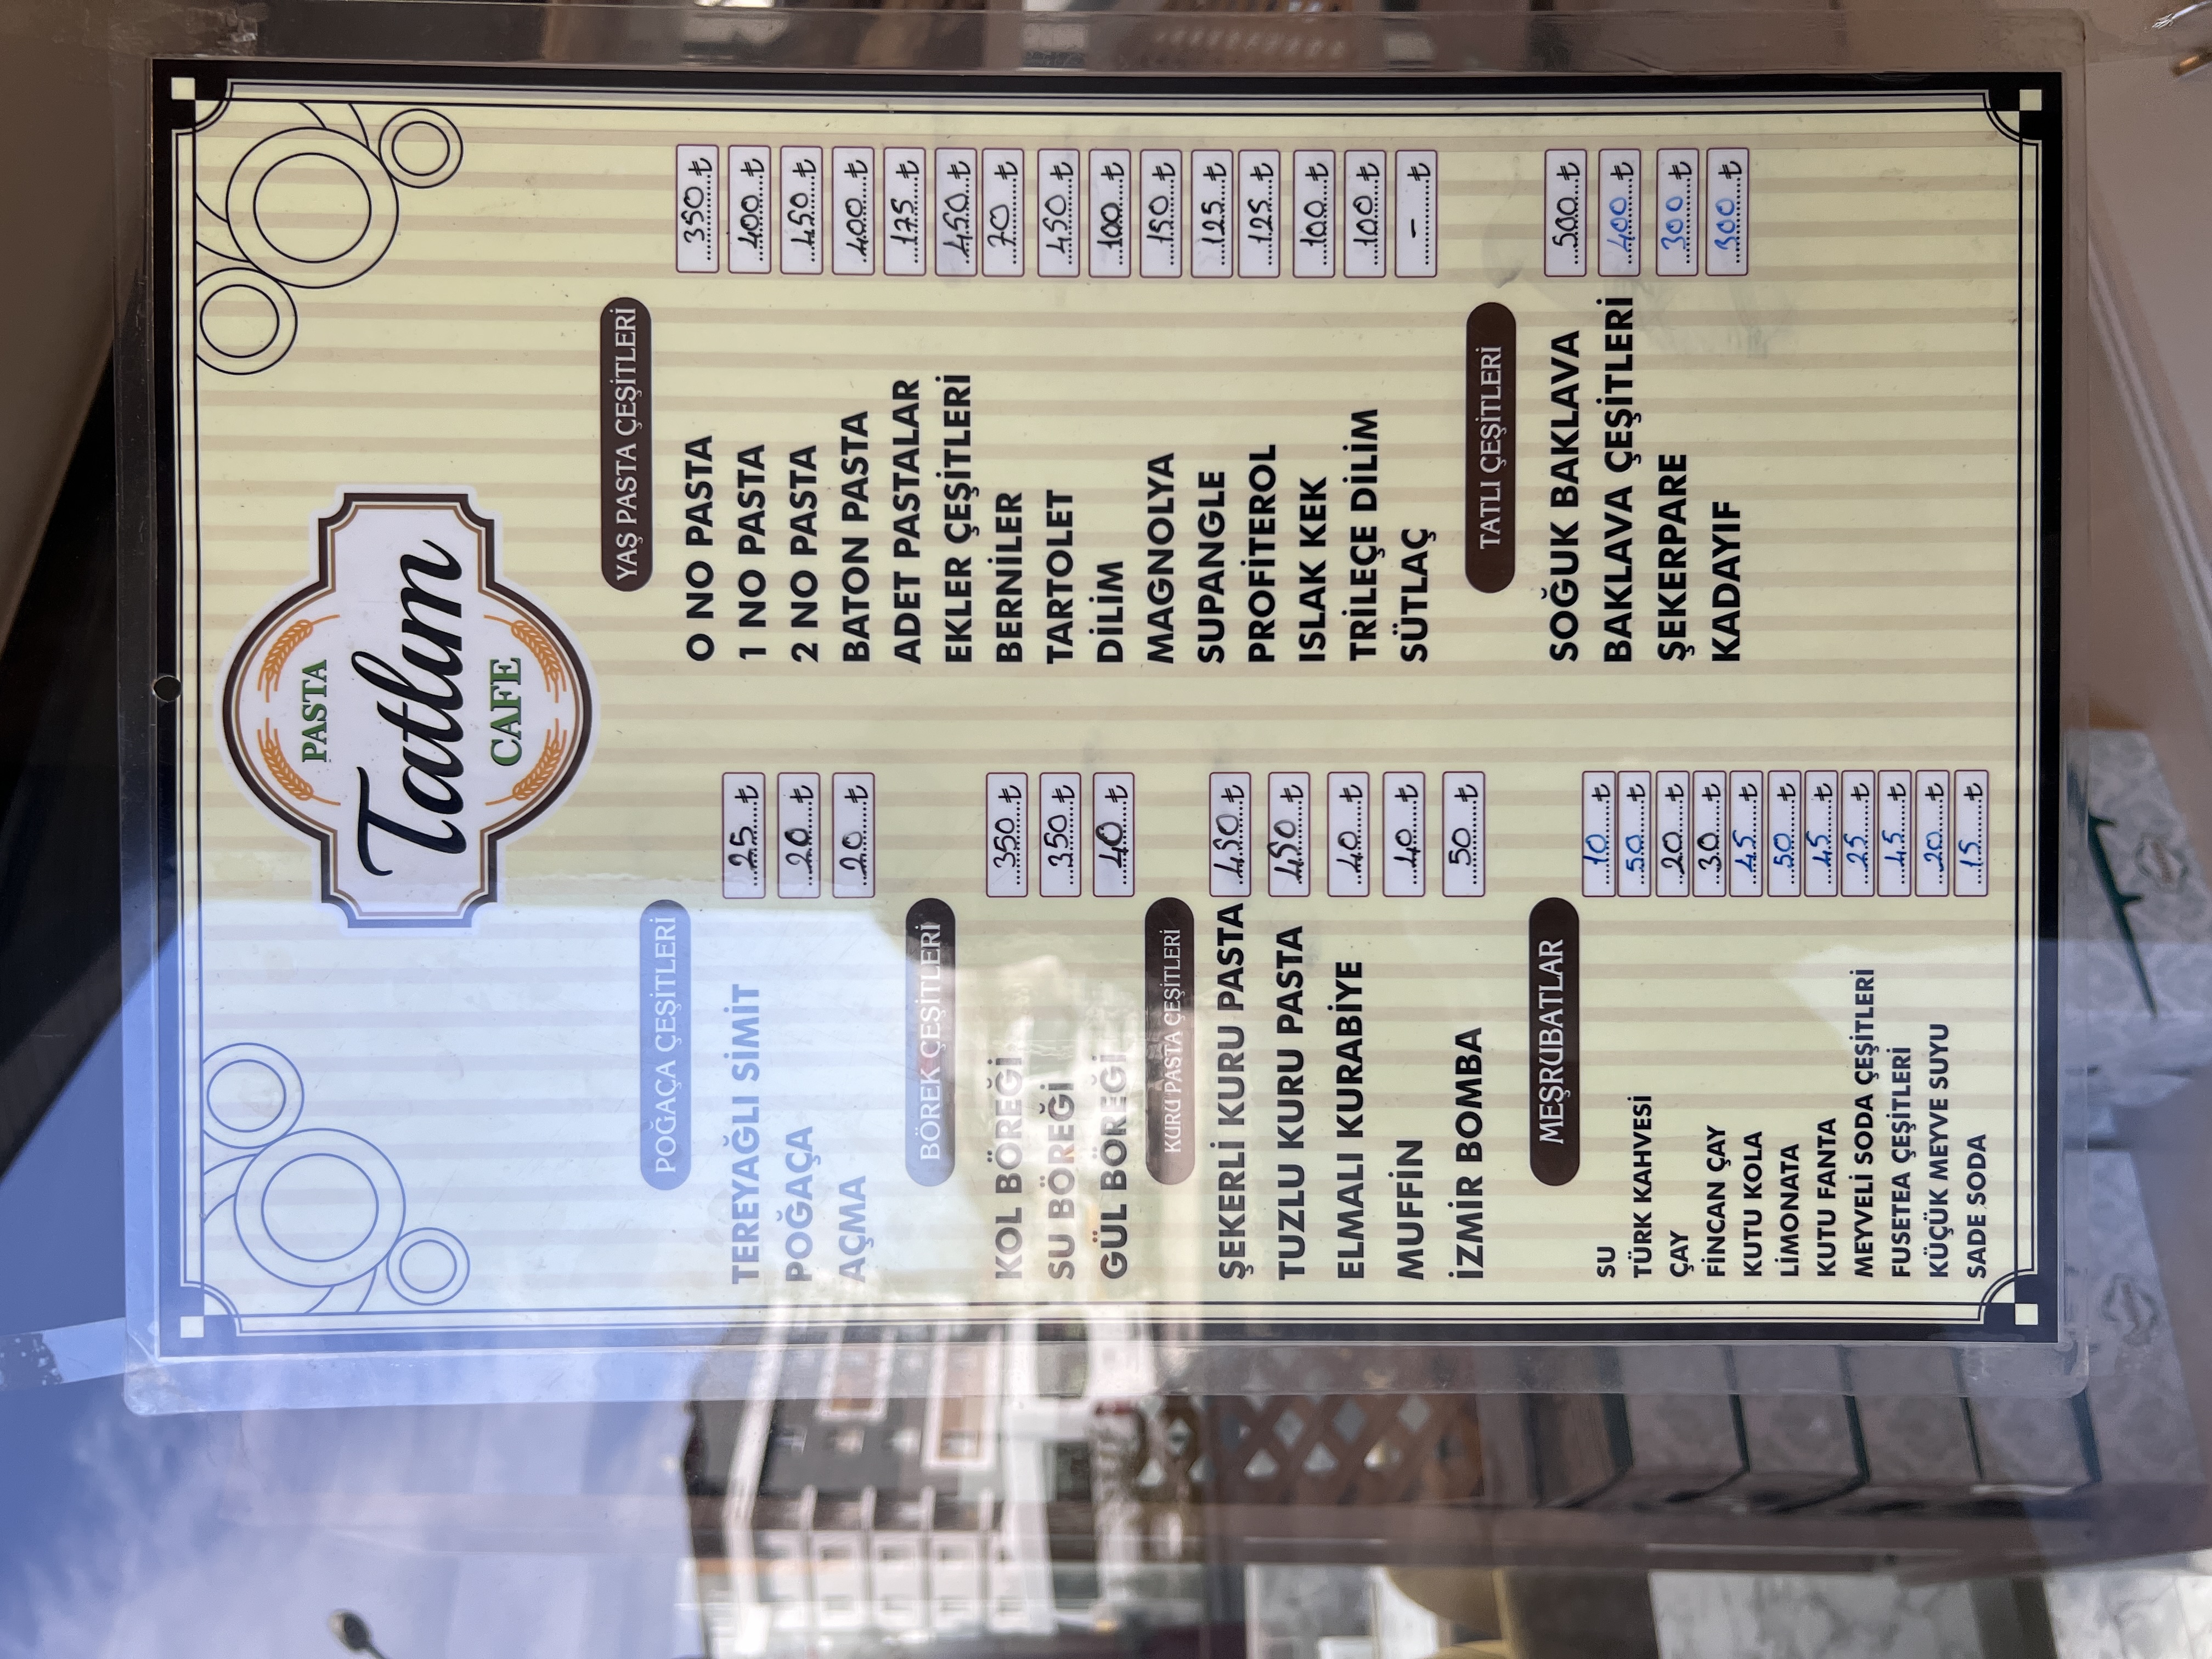 PASTA
Tatlım
CAFE
POĞAÇA ÇEŞİTLERİ
TEREYAĞLI SİMİT 25 ₺
POĞAÇA 20 ₺
AÇMA 20 ₺
BÖREK ÇEŞİTLERİ
KOL BÖREĞİ 350 ₺
SU BÖREĞİ 350 ₺
GÜL BÖREĞİ 40 ₺
KURU PASTA ÇEŞİTLERİ
ŞEKERLİ KURU PASTA 450 ₺
TUZLU KURU PASTA 450 ₺
ELMALI KURABİYE 40 ₺
MUFFİN 40 ₺
İZMİR BOMBA 50 ₺
MEŞRUBATLAR
SU 10 ₺
TÜRK KAHVESİ 50 ₺
ÇAY 20 ₺
FİNCAN ÇAY 30 ₺
KUTU KOLA 45 ₺
LİMONATA 50 ₺
KUTU FANTA 45 ₺
MEYVELİ SODA ÇEŞİTLERİ 25 ₺
FUSETEA ÇEŞİTLERİ 45 ₺
KÜÇÜK MEYVE SUYU 20 ₺
SADE SODA 15 ₺
YAŞ PASTA ÇEŞİTLERİ
O NO PASTA 350 ₺
1 NO PASTA 400 ₺
2 NO PASTA 450 ₺
BATON PASTA 400 ₺
ADET PASTALAR 125 ₺
EKLER ÇEŞİTLERİ 450 ₺
BERNİLER 70 ₺
TARTOLET 450 ₺
DİLİM 100 ₺
MAGNOLYA 150 ₺
SUPANGLE 125 ₺
PROFİTEROL 125 ₺
ISLAK KEK 100 ₺
TRİLEÇE DİLİM 100 ₺
SÜTLAÇ - ₺
TATLI ÇEŞİTLERİ
SOĞUK BAKLAVA 500 ₺
BAKLAVA ÇEŞİTLERİ 400 ₺
ŞEKERPARE 300 ₺
KADAYIF 300 ₺